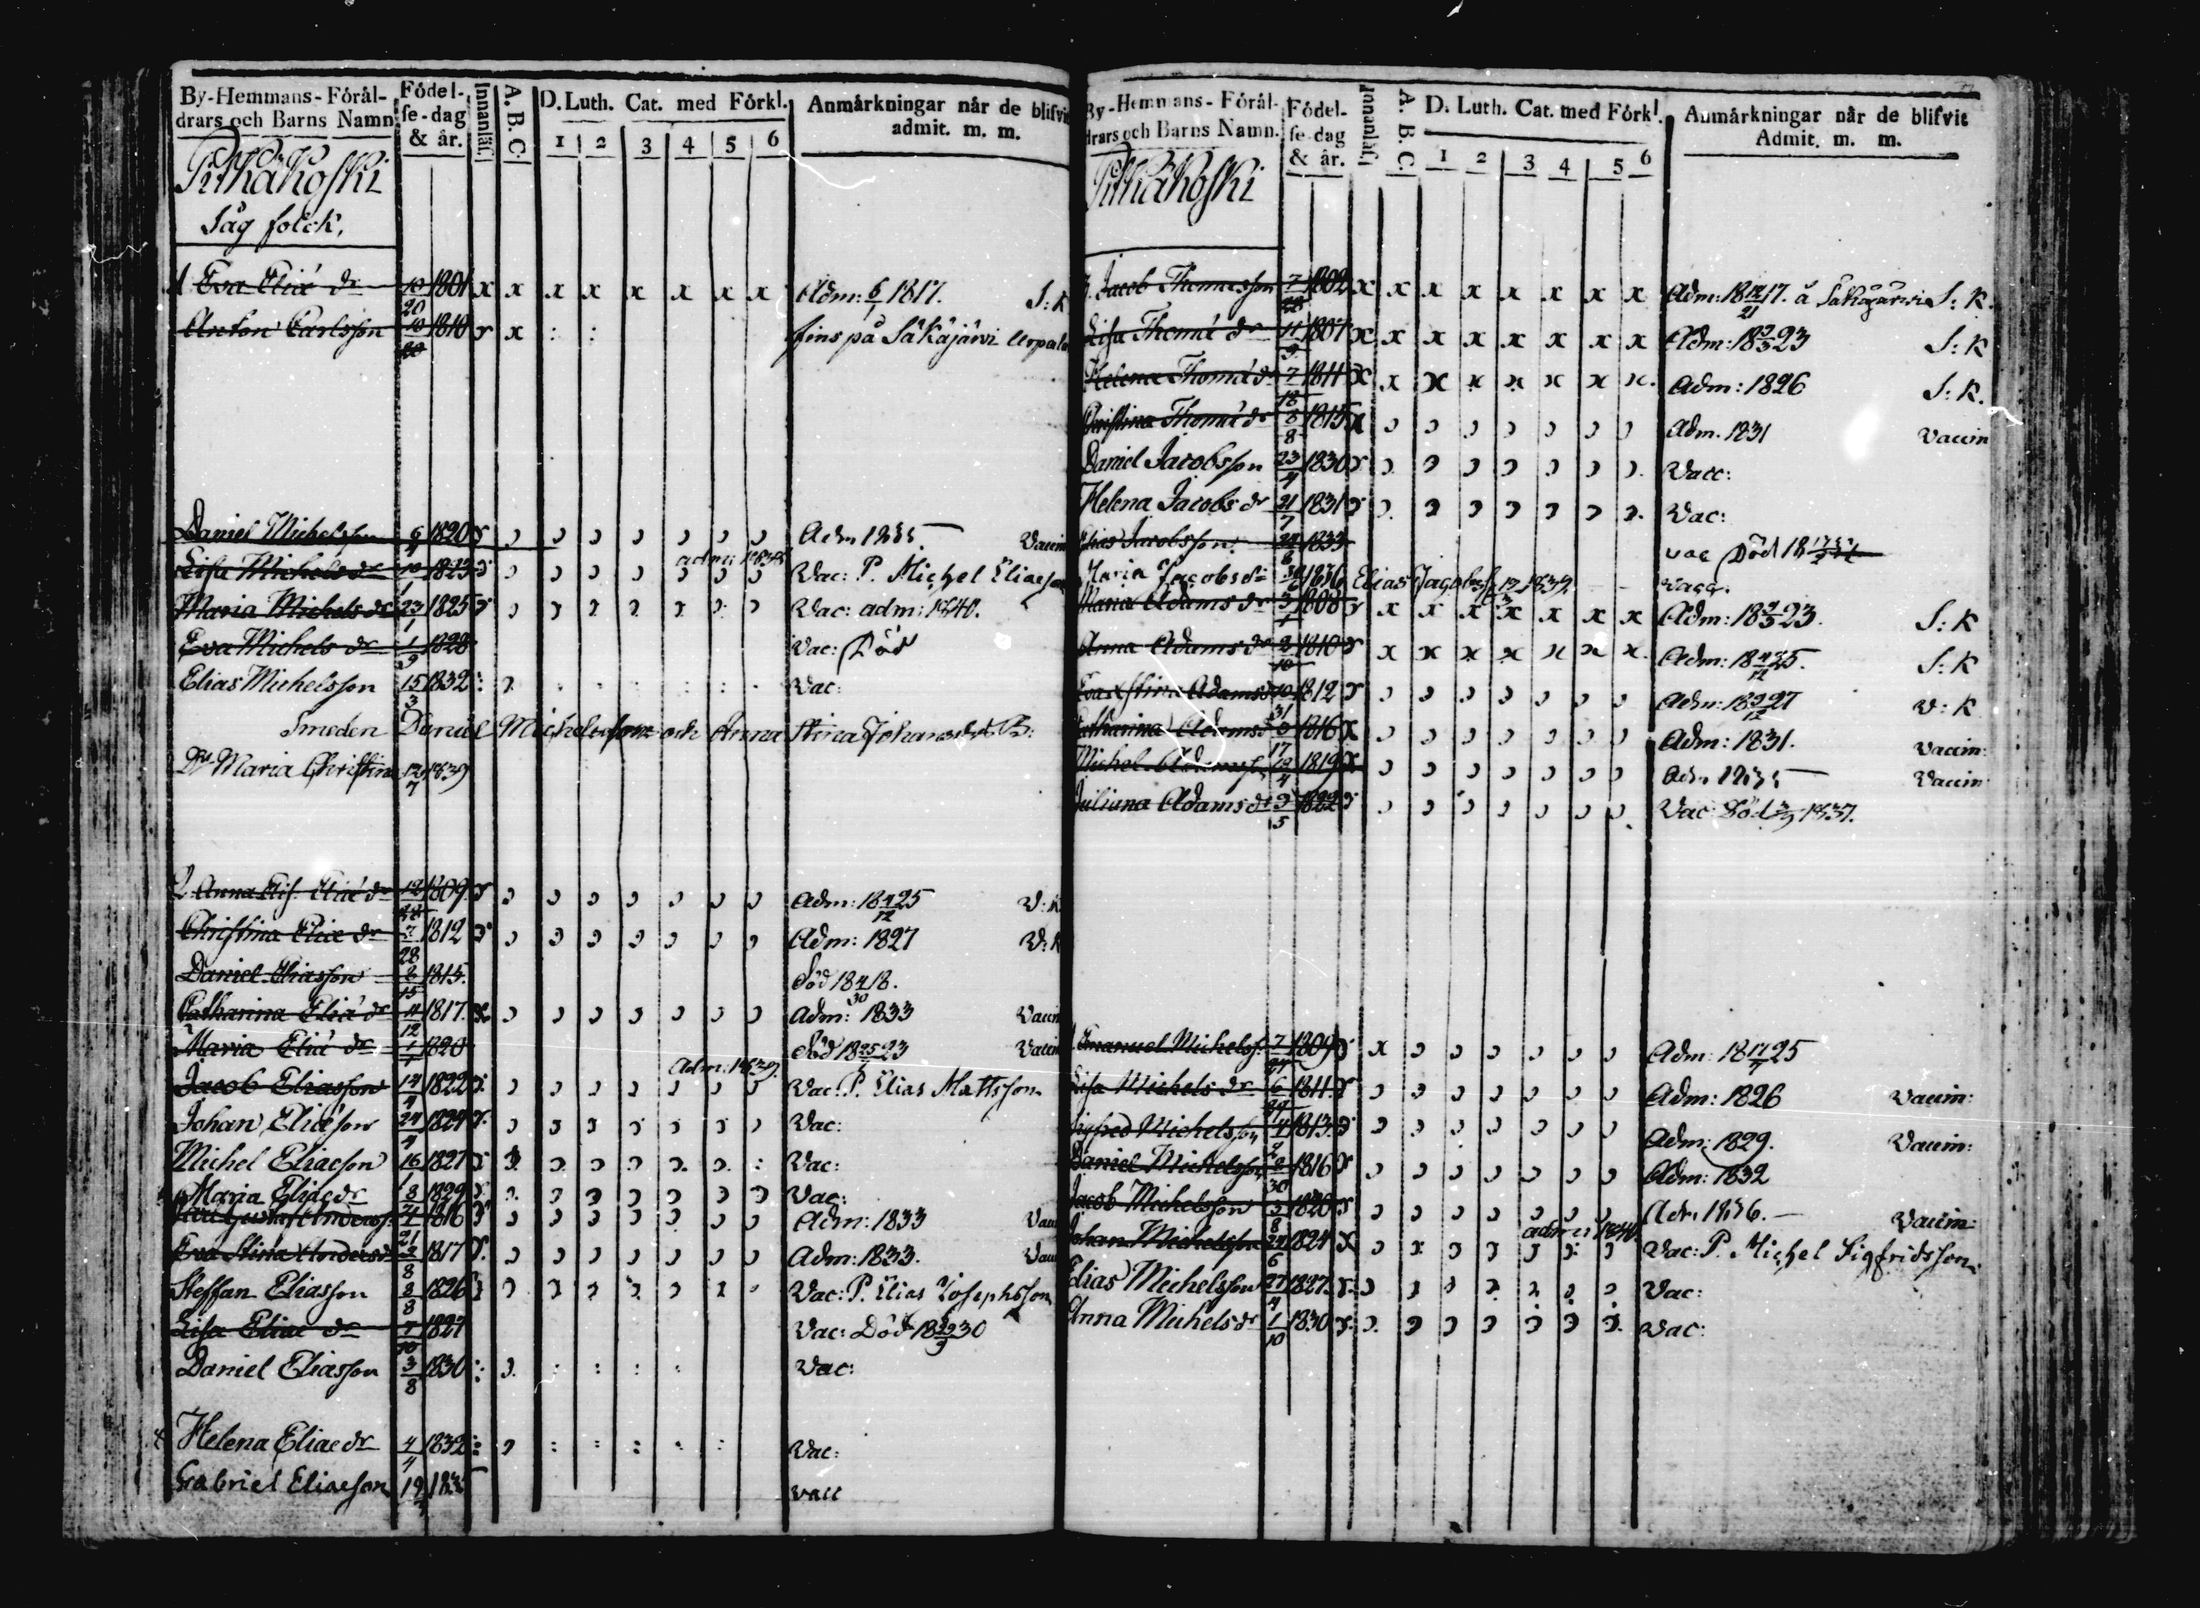 By-Hemmans-Förål-
drars och Barns Namn
Födel-
se-dag
& år.
Innanläs.
A. B. C.
D. Luth. Cat. med Förkl.
1 2 3 4 5 6
Anmärkningar når de blifvit
admit. m. m.
Pitkäkoski
Såg folck.
1 Eva Eliæ dr 10/20 1801 x x x x x x x x Adm: 6/1 1817. S: K
Anton Carlsson 10/20 1810 x fins på Säkäjärvi
Daniel Michelsson 6 1820 Adm 1835 Vaccin
Lisa Michels dr 10/1 1823 admi 1838 Vac: P. Michel Eliaeson
Maria Michels dr 23/1 1825 Vac: adm: 1840.
Eva Michels dr 1/9 1828 Vac: Död
Elias Michelsson 15/3 1832 Vac:
Smeden Daniel Michelsson och Anna Stina Johansdr B:
Dr Maria Christina 12/7 1839
2 Anna Elis. Eliæ dr 12 1809 Adm: 18 4/12 25 V: K
Christina Eliæ dr 7/28 1812 Adm: 1827 V: K
Daniel Eliasson 2/15 1815. Död 18 4/30 18.
Catharina Eliæ dr 11/12 1817. Adm: 1833 Vaccin
Maria Eliæ dr 1/1 1820 Död 18 25 23 Vaccin
Jacob Eliasson 14/4 1822 Adm. 1839. Vac: P. Elias Mattsson
Johan Eliæson 24/4 1824 Vac:
Michel Eliaeson 16 1827 Vac:
Maria Eliae dr 8 1829 Vac:
1816 Adm: 1833
Eva Stina Andersdr 2/8 1817 Adm: 1833.
Steffan Eliasson 8/8 1826 Vac: P. Elias Josephsson
Lisa Eliae dr 7/10 1827 Vac: Död 18 30
Daniel Eliasson 3/8 1830 Vac:
Helena Eliae dr 4/4 1832 Vac:
Gabriel Eliaeson 19 1835 vacc
By-Hemmans-Förål-
drars och Barns Namn.
Födel-
se-dag
& år.
Innanläs.
A. B. C.
D. Luth. Cat. med Förkl.
1 2 3 4 5 6
Anmärkningar når de blifvit
Admit. m. m.
Pitkäkoski
Jacob Thomasson 7/28 1802 x x x x x x x x Adm: 18 12/21 17. å Säkäjärvi S: K.
Lisa Thomæ dr 11/9 1807 x x x x x x x x Adm: 18 2/3 23 S: K
Helena Thomæ dr 7/18 1811 x x x x x x x x Adm: 1826 S: K.
Christina Thomæ dr 8/8 1815 x Adm. 1831 Vaccin
Daniel Jacobsson 23/4 1830 Vacc:
Helena Jacobs dr 21/7 1831 Vac:
Elias Jacobsson 24/8 1833 vac Död 18
Maria Jacobs dr 1836 Elias Jacobss 1839. vacc.
Maria Adams dr 3/1 1808 x x x x x x x Adm: 18 2/3 23. S: K
Anna Adams dr 2/10 1810 x x x x x x x Adm: 18 4/12 25. S: K
Eva Stina Adamsdr 10/31 1812 Adm: 18 2/12 27 V: K
Catharina Adams dr 3/17 1816 Adm: 1831. Vaccin:
Michel Adamss 1819 Adm 1835 Vaccin:
Juliana Adams dr 9/5 1822 Vac: Död 1837.
Emanuel Michelss. 7 1809 x Adm: 18 17/4 25
Lisa Michels dr 6 1811 Adm: 1826 Vaccin:
Sigfred Michelsson 1813 Adm: 1829. Vaccin:
Daniel Michelsson 8/30 1816 Adm: 1832
Jacob Michelsson 3/8 1820 Adm 1836. Vaccin:
Johan Michelsson 24/6 1824 admi 1840 Vac: P. Michel Sigfridsson
Elias Michelsson 27/4 1827 Vac:
Anna Michels dr 1/10 1830 Vac: